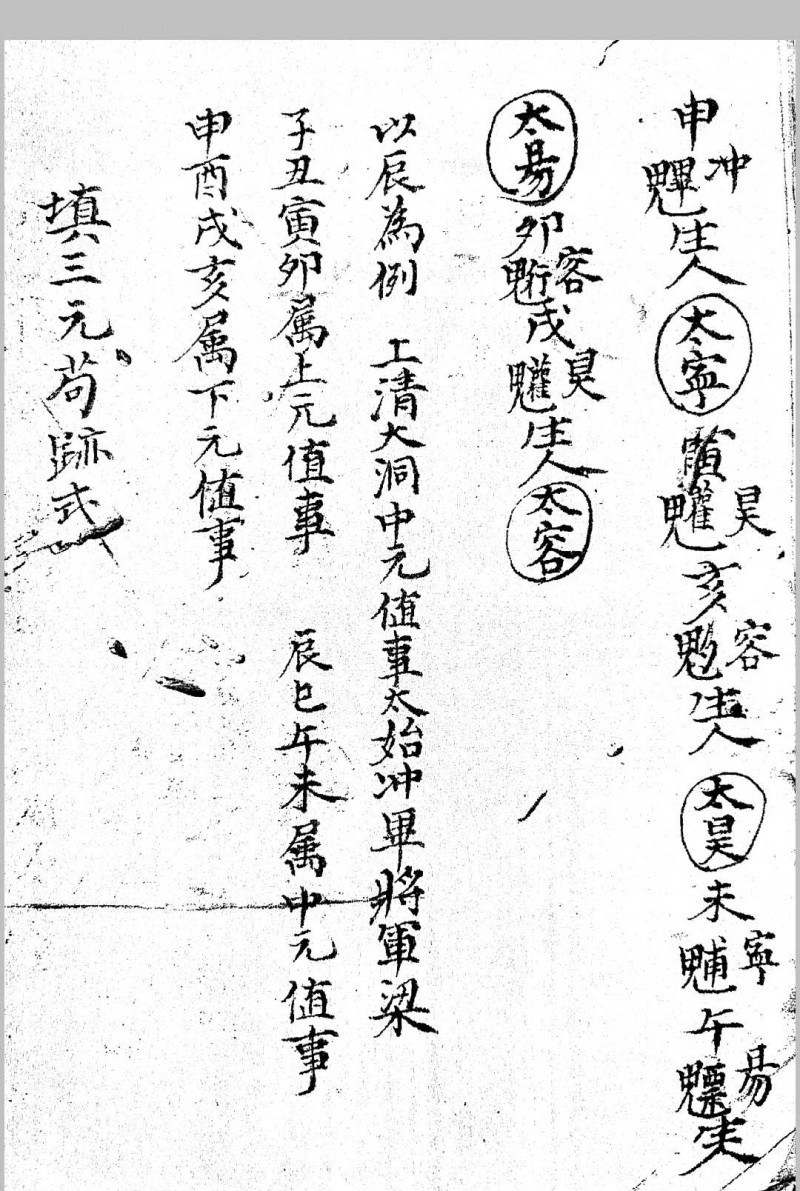 申䰢冲生人 太寧 寅䰥昊亥魒容生人 太昊 未䰶寧午魒昜生人
太昜 卯魒容戌䰥昊生人 太容
以辰為例 上清大洞中元值事太始冲畢將軍梁
子丑寅卯属上元值事 辰巳午未属中元值事
申酉戌亥属下元值事
填三元茍跡式